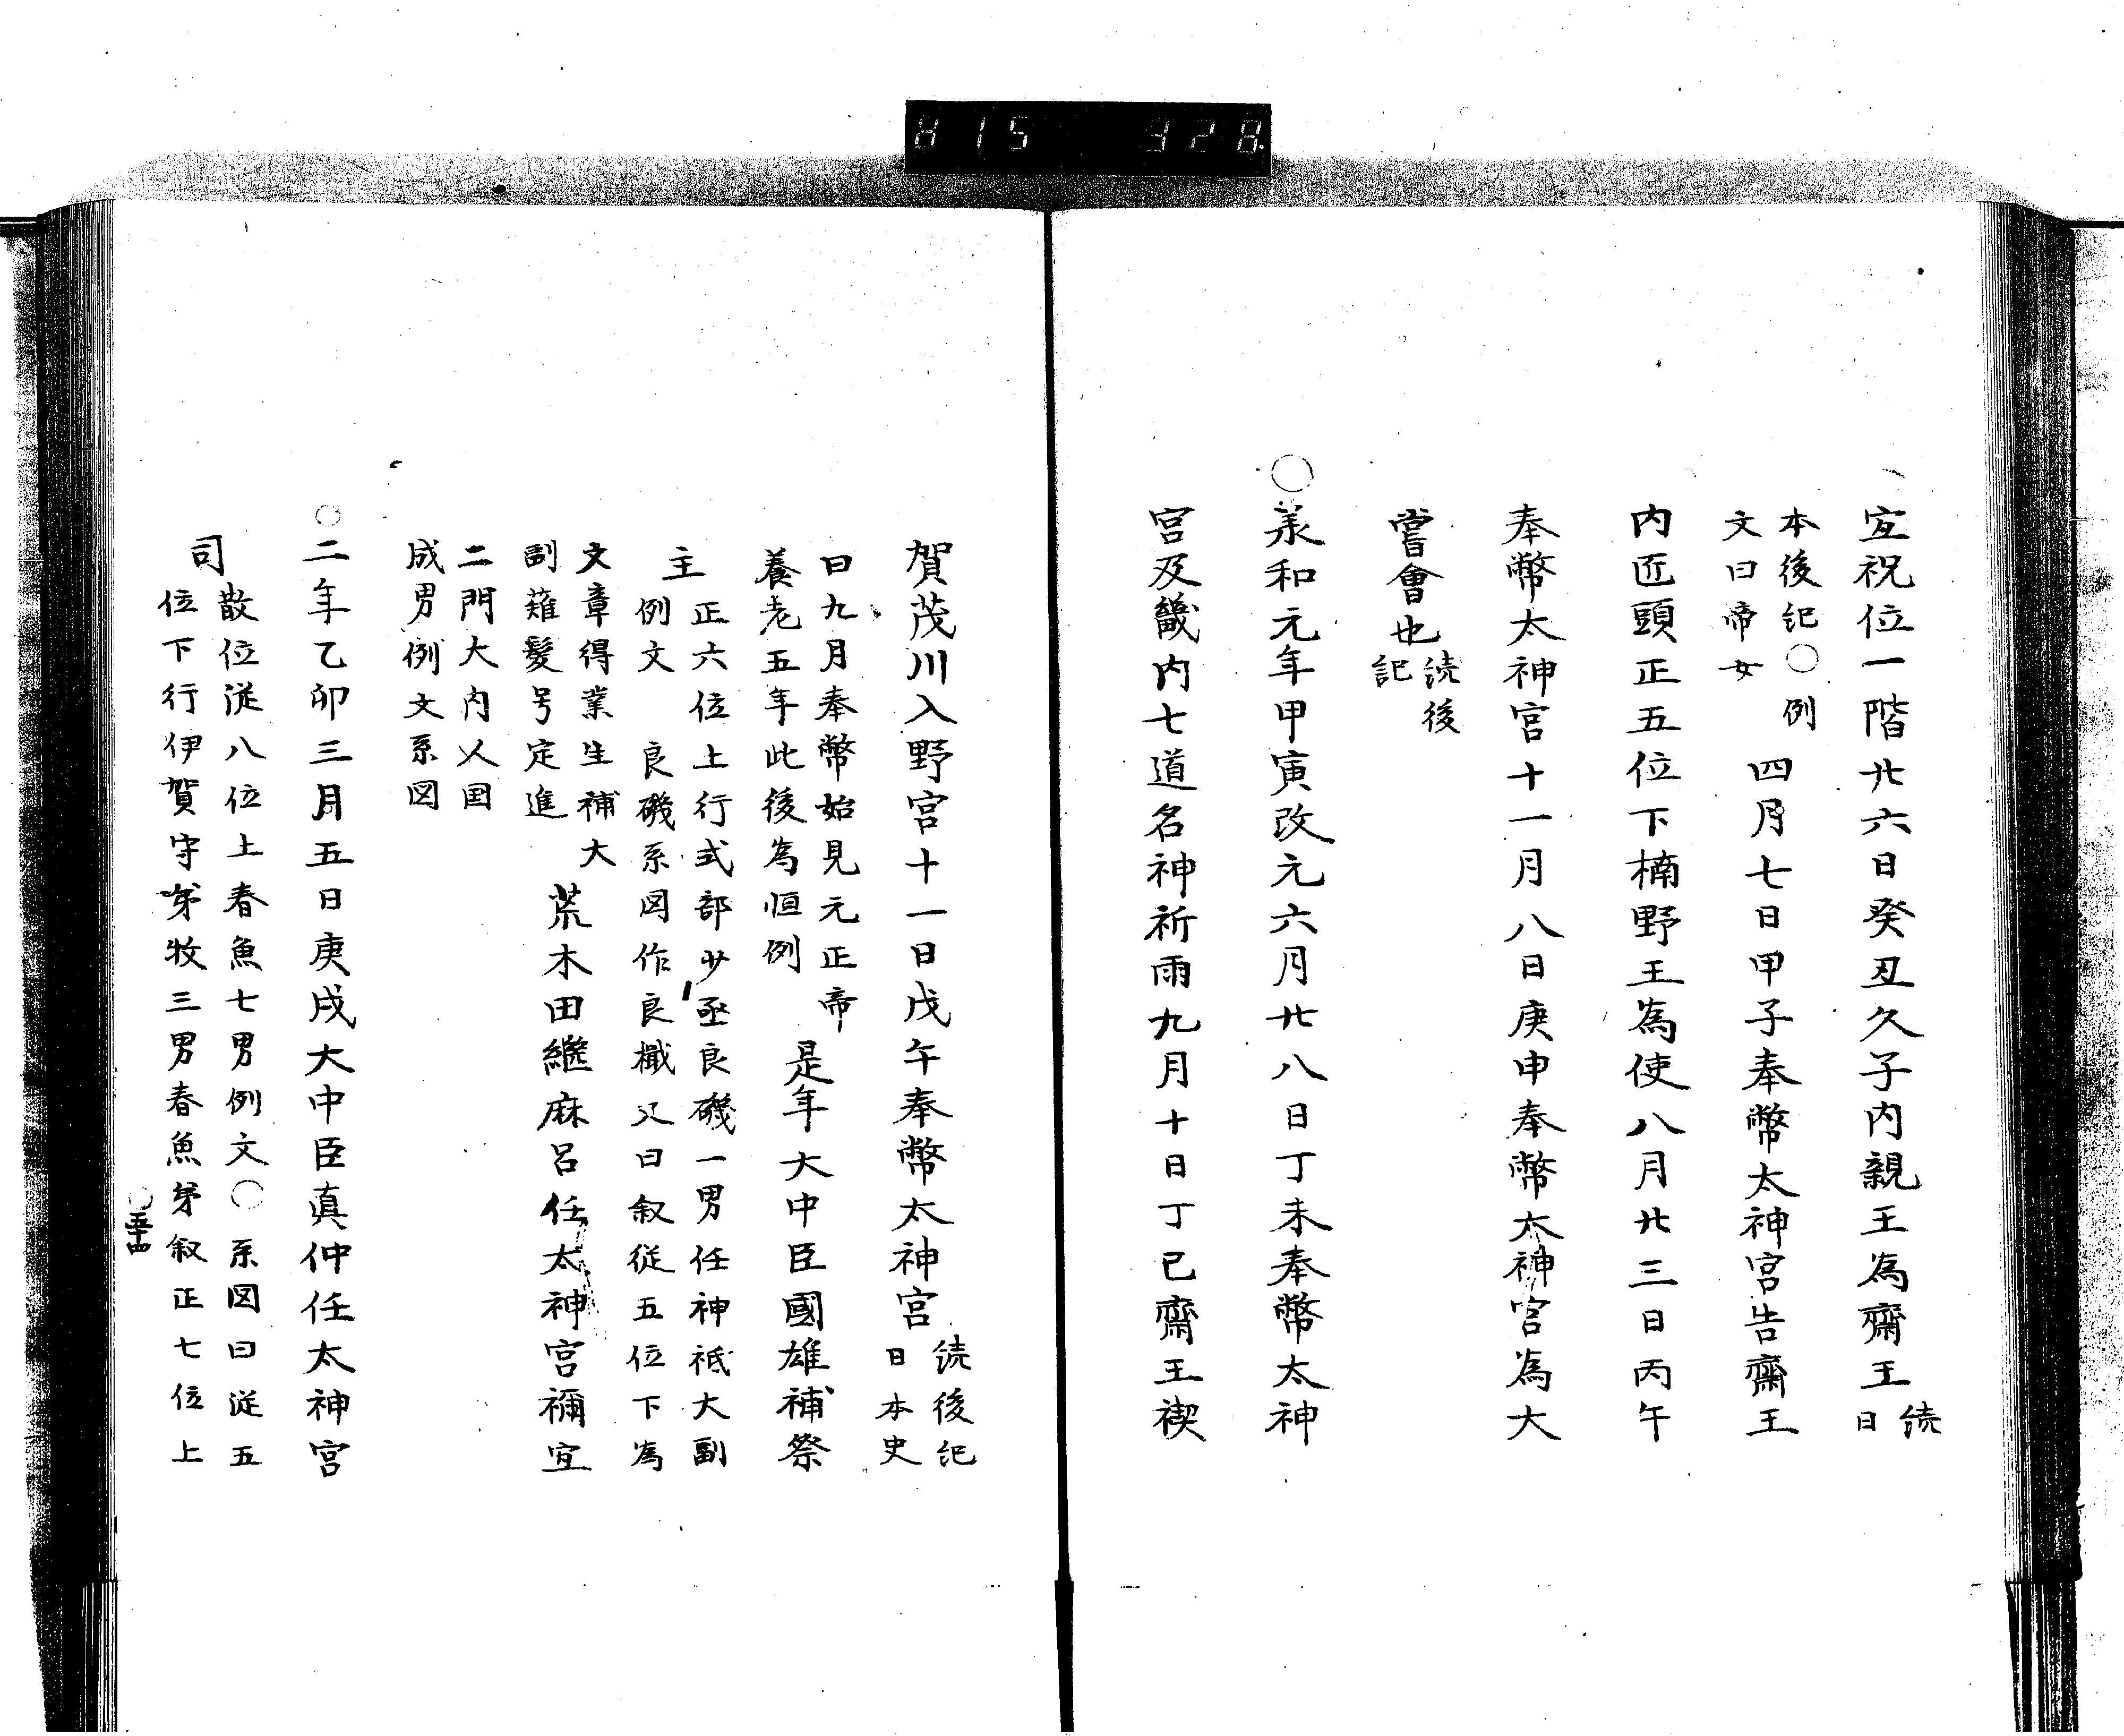 宜祝位一階廿六日癸丑久子内親王為齋王続日
本後記〇例文曰帝女四月七日甲子奉幣太神宮告齋王
内匠頭正五位下楠野王為使八月廿三日丙午
奉幣太神宮十一月八日庚申奉幣太神宮為大
嘗會也続後記
〇承和元年甲寅改元六月廿八日丁未奉幣太神
宮及畿内七道名神祈雨九月十日丁巳齋王禊
賀茂川入野宮十一日戊午奉幣太神宮続後記日本史
曰九月奉幣始見元正帝養老五年此後為恒例是年大中臣國雄補祭
主正六位上行式部少丞良磯一男任神祇大副例文 良磯系図作良檝又曰叙従五位下為
文章得業生補大副薙髪号定進荒木田継麻呂任太神宮禰宜
二門大内人国成男例文系図
〇二年乙卯三月五日庚戌大中臣真仲任太神宮
司散位従八位上春魚七男例文〇系図曰従五位下行伊賀守弟牧三男春魚弟叙正七位上
〇五十四
815 328